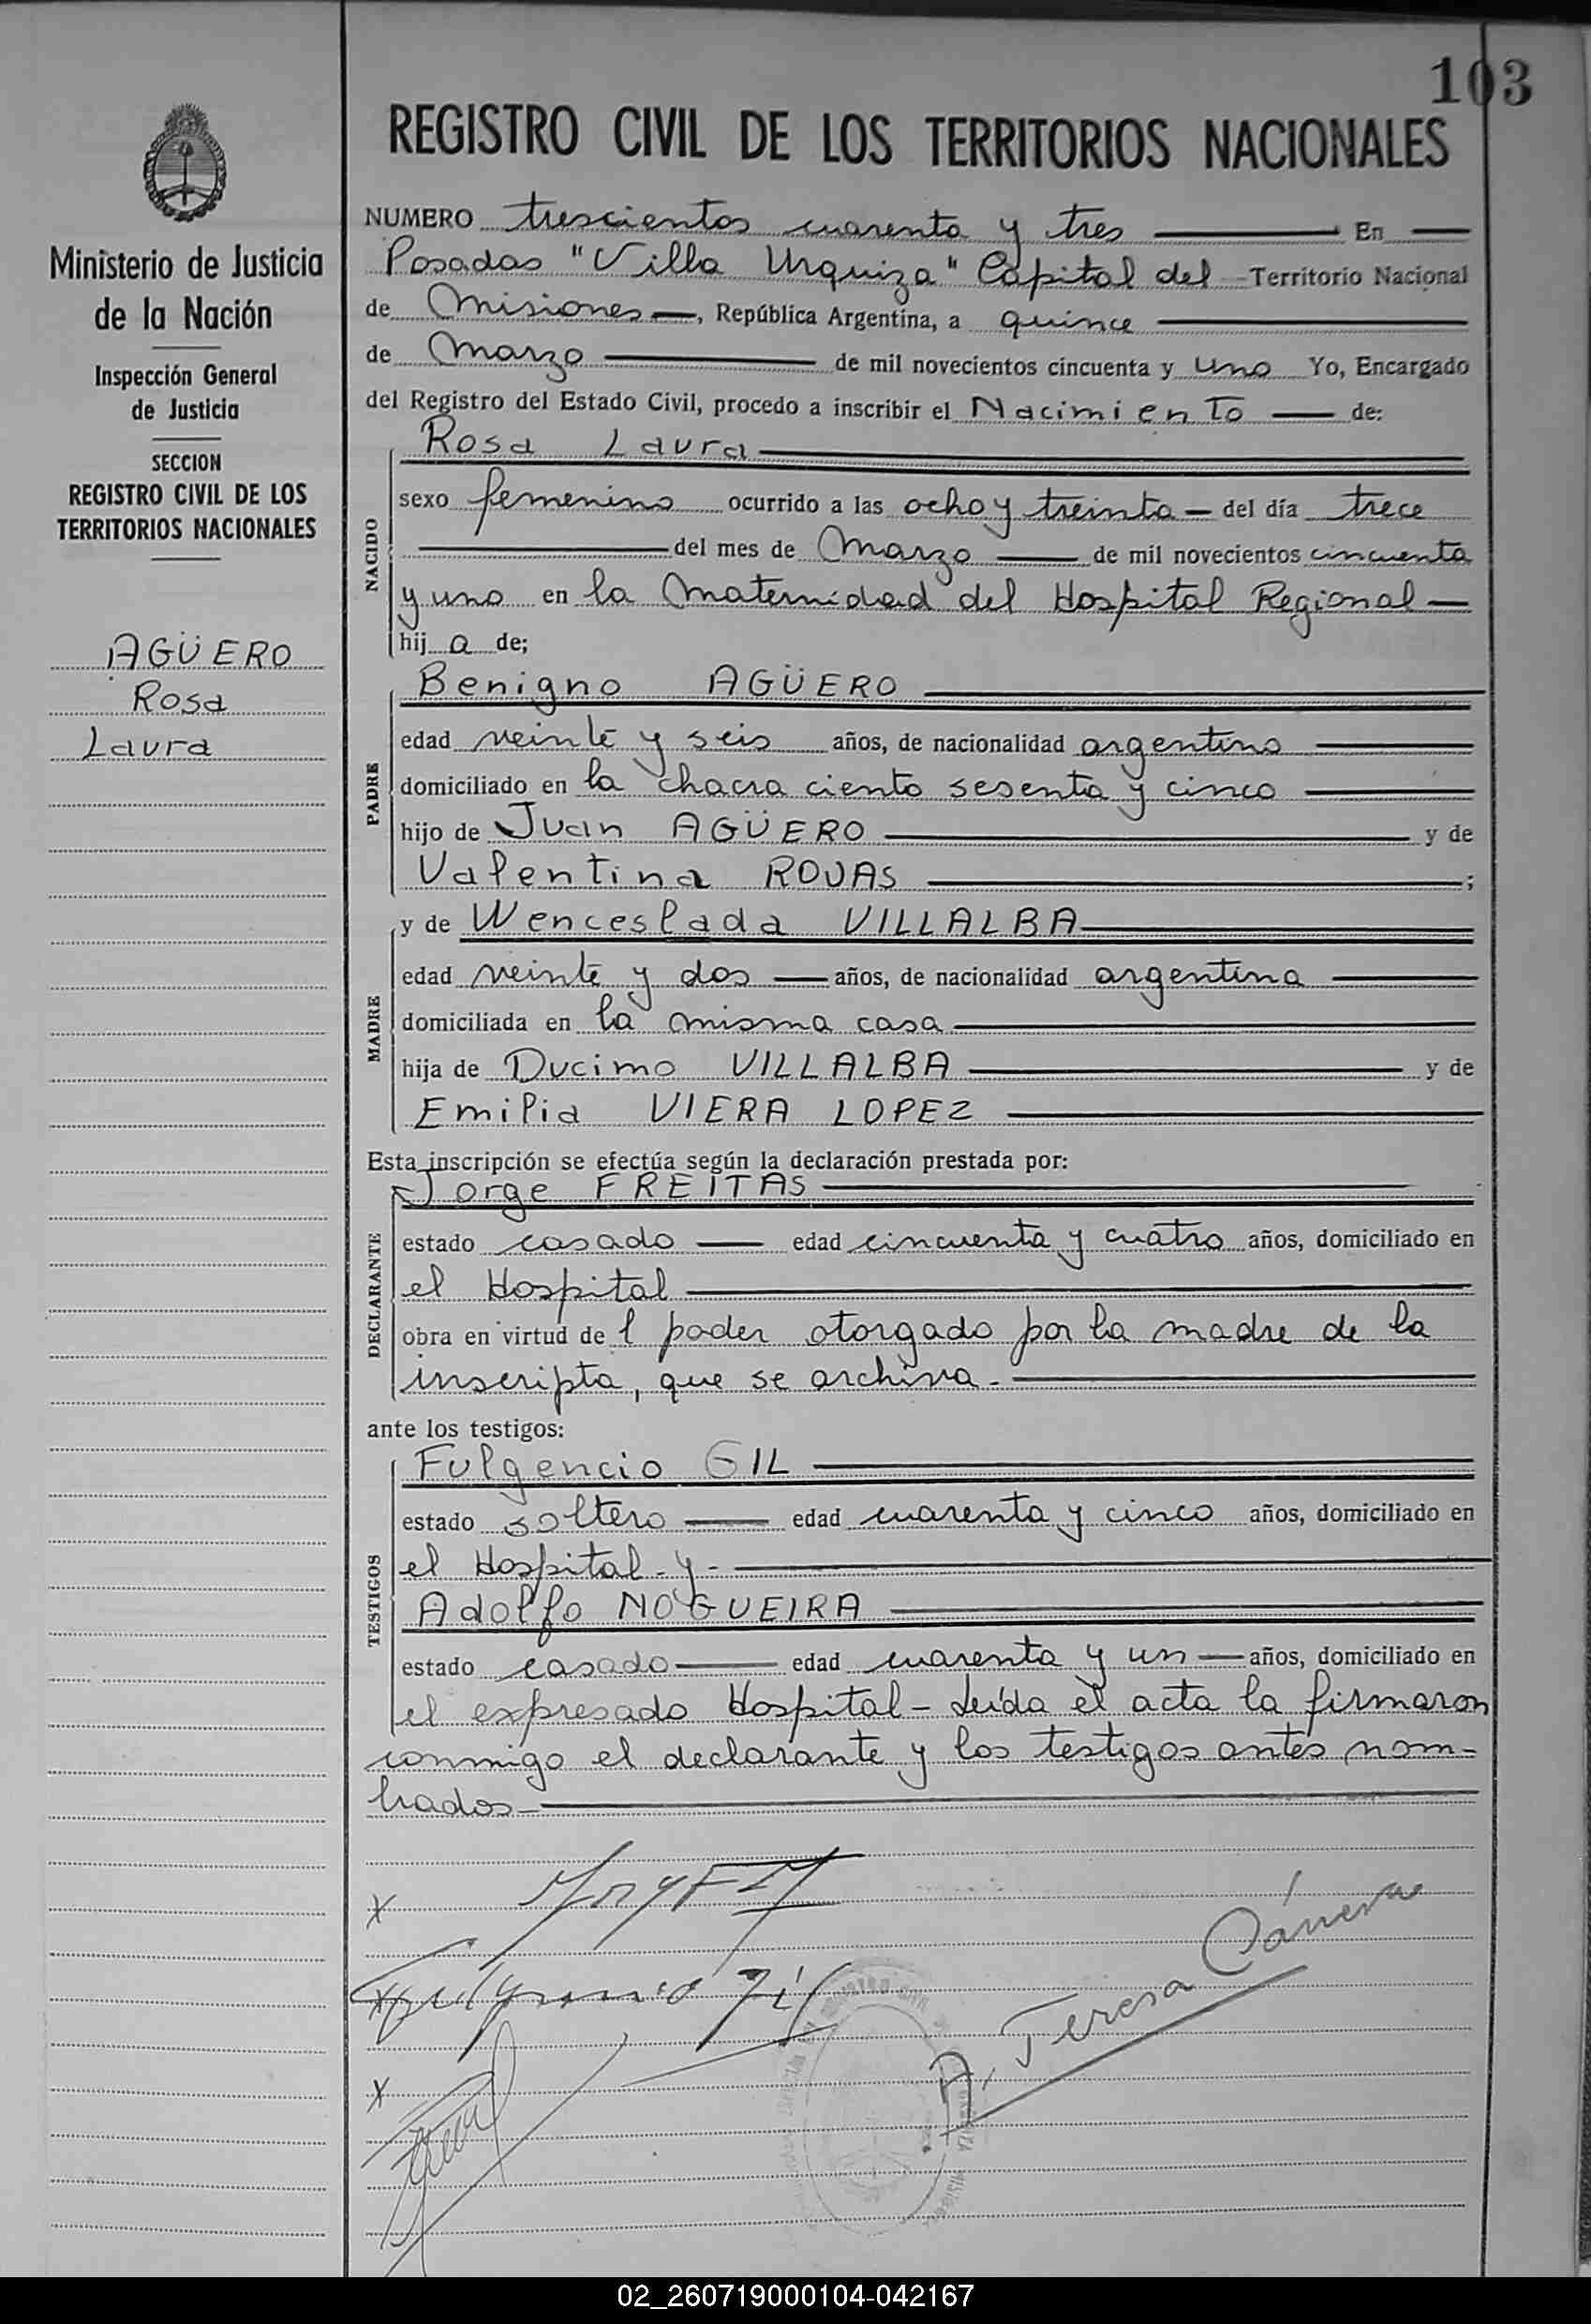 103
REGISTRO CIVIL DE LOS TERRITORIOS NACIONALES
Ministerio de Justicia
de la Nación
Inspección General
de Justicia
SECCION
REGISTRO CIVIL DE LOS
TERRITORIOS NACIONALES
AGÜERO
Rosa
Laura
NUMERO trescientos cuarenta y tres En
Posadas "Villa Urquiza" Capital del Territorio Nacional
de Misiones, República Argentina, a quince
de Marzo de mil novecientos cincuenta y uno Yo, Encargado
del Registro del Estado Civil, procedo a inscribir el Nacimiento de:
Rosa Laura
NACIDO
sexo femenino ocurrido a las ocho y treinta del día trece
del mes de Marzo de mil novecientos cincuenta
y uno en la Maternidad del Hospital Regional
hija de;
Benigno AGÜERO
PADRE
edad veinte y seis años, de nacionalidad argentino
domiciliado en la chacra ciento sesenta y cinco
hijo de Juan AGÜERO y de
Valentina ROJAS ;
y de Wenceslada VILLALBA
MADRE
edad veinte y dos años, de nacionalidad argentina
domiciliada en la misma casa
hija de Ducimo VILLALBA y de
Emilia VIERA LOPEZ
Esta inscripción se efectúa según la declaración prestada por:
Jorge FREITAS
DECLARANTE
estado casado edad cincuenta y cuatro años, domiciliado en
el Hospital
obra en virtud del poder otorgado por la madre de la
inscripta, que se archiva.
ante los testigos:
Fulgencio GIL
TESTIGOS
estado soltero edad cuarenta y cinco años, domiciliado en
el Hospital - y -
Adolfo NOGUEIRA
estado casado edad cuarenta y un años, domiciliado en
el expresado Hospital - Leída el acta la firmaron
conmigo el declarante y los testigos antes nom-
brados -
x
x
x
A. Teresa
02_260719000104-042167